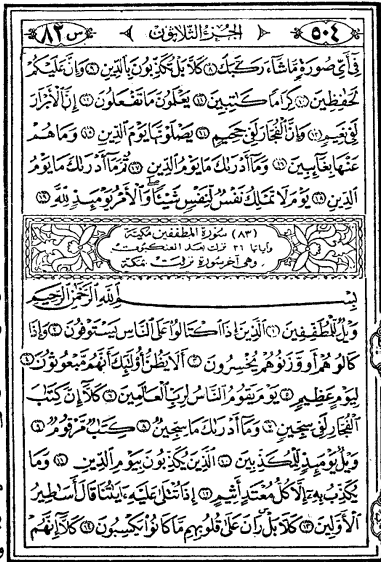 ٥٠٤ الجزء الثلاثون س ٨٣
فِىٓ أَىِّ صُورَةٍ مَّا شَآءَ رَكَّبَكَ ٨ كَلَّا بَلْ تُكَذِّبُونَ بِٱلدِّينِ ٩ وَإِنَّ عَلَيْكُمْ
لَحَٰفِظِينَ ١٠ كِرَامًا كَٰتِبِينَ ١١ يَعْلَمُونَ مَا تَفْعَلُونَ ١٢ إِنَّ ٱلْأَبْرَارَ
لَفِى نَعِيمٍ ١٣ وَإِنَّ ٱلْفُجَّارَ لَفِى جَحِيمٍ ١٤ يَصْلَوْنَهَا يَوْمَ ٱلدِّينِ ١٥ وَمَا هُمْ
عَنْهَا بِغَآئِبِينَ ١٦ وَمَآ أَدْرَىٰكَ مَا يَوْمُ ٱلدِّينِ ١٧ ثُمَّ مَآ أَدْرَىٰكَ مَا يَوْمُ
ٱلدِّينِ ١٨ يَوْمَ لَا تَمْلِكُ نَفْسٌ لِّنَفْسٍ شَيْـًٔا وَٱلْأَمْرُ يَوْمَئِذٍ لِّلَّهِ ١٩
(٨٣) سورة المطففين مكية
وآياتها ٣٦ نزلت بعد العنكبوت
وهى آخر سورة نزلت بمكة
بِسْمِ ٱللَّهِ ٱلرَّحْمَٰنِ ٱلرَّحِيمِ
وَيْلٌ لِّلْمُطَفِّفِينَ ١ ٱلَّذِينَ إِذَا ٱكْتَالُوا۟ عَلَى ٱلنَّاسِ يَسْتَوْفُونَ ٢ وَإِذَا
كَالُوهُمْ أَو وَّزَنُوهُمْ يُخْسِرُونَ ٣ أَلَا يَظُنُّ أُو۟لَٰٓئِكَ أَنَّهُم مَّبْعُوثُونَ ٤
لِيَوْمٍ عَظِيمٍ ٥ يَوْمَ يَقُومُ ٱلنَّاسُ لِرَبِّ ٱلْعَٰلَمِينَ ٦ كَلَّآ إِنَّ كِتَٰبَ
ٱلْفُجَّارِ لَفِى سِجِّينٍ ٧ وَمَآ أَدْرَىٰكَ مَا سِجِّينٌ ٨ كِتَٰبٌ مَّرْقُومٌ ٩
وَيْلٌ يَوْمَئِذٍ لِّلْمُكَذِّبِينَ ١٠ ٱلَّذِينَ يُكَذِّبُونَ بِيَوْمِ ٱلدِّينِ ١١ وَمَا
يُكَذِّبُ بِهِۦٓ إِلَّا كُلُّ مُعْتَدٍ أَثِيمٍ ١٢ إِذَا تُتْلَىٰ عَلَيْهِ ءَايَٰتُنَا قَالَ أَسَٰطِيرُ
ٱلْأَوَّلِينَ ١٣ كَلَّا بَلْ رَانَ عَلَىٰ قُلُوبِهِم مَّا كَانُوا۟ يَكْسِبُونَ ١٤ كَلَّآ إِنَّهُمْ